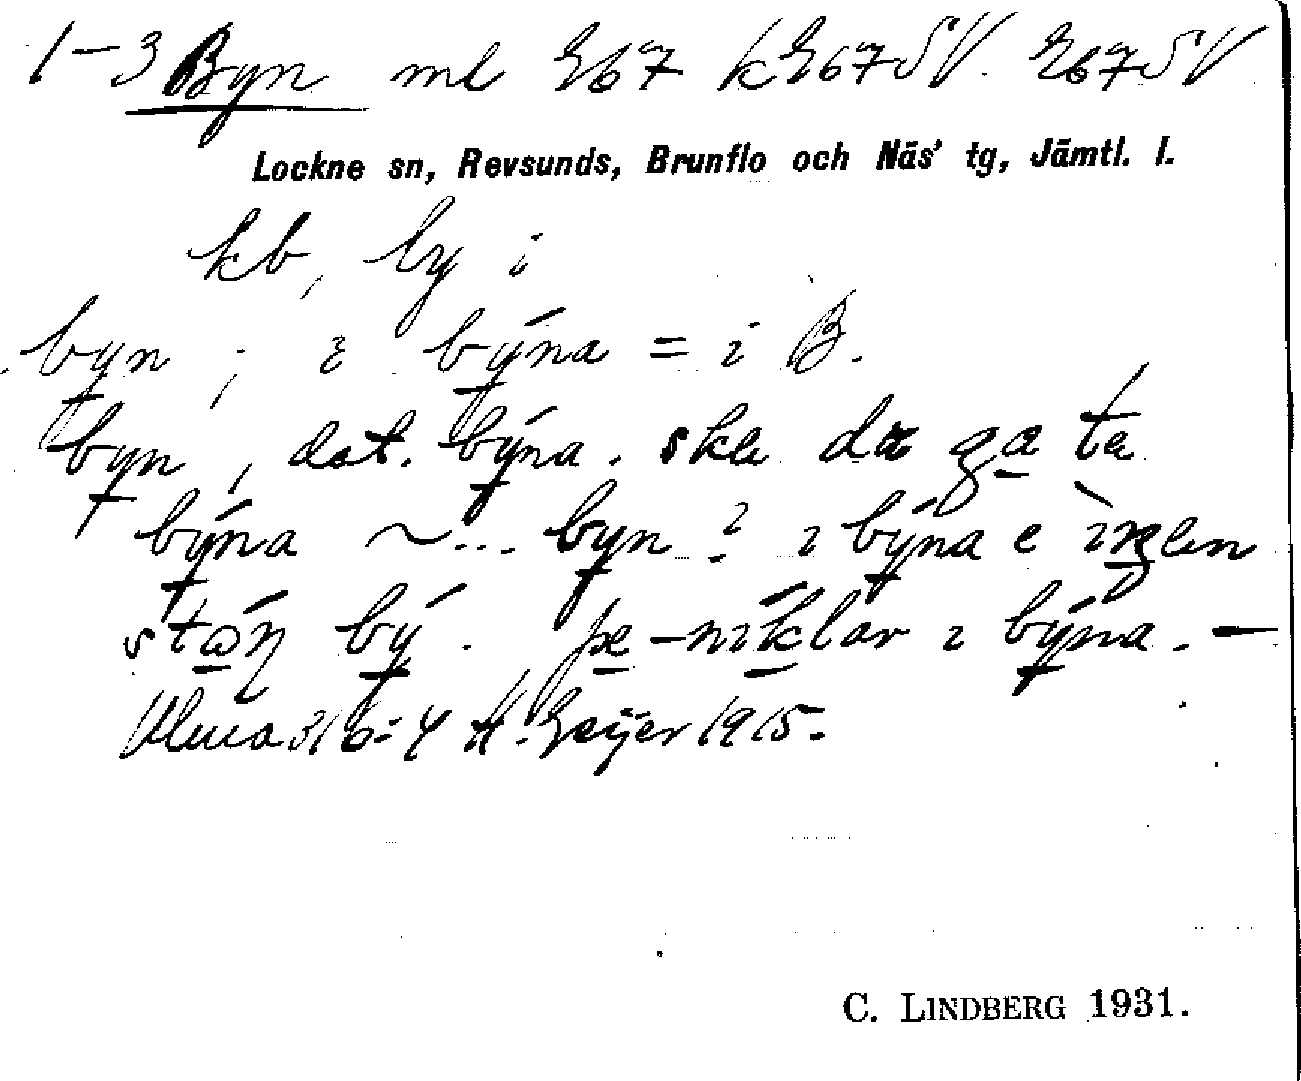 1–3 Byn ml E67 kE67SV. E67SV
Lockne sn, Revsunds, Brunflo och Näs' tg, Jämtl. l.
kb, by i
byn ; i býna = i B.
byn, dat. býna. ska da ga te
býna ~... byn? i býna e ìŋen
stǿŋ bý. pe-níklar i býna. –
Ulma 316:4 H. Geijer 1915.
C. LINDBERG 1931.